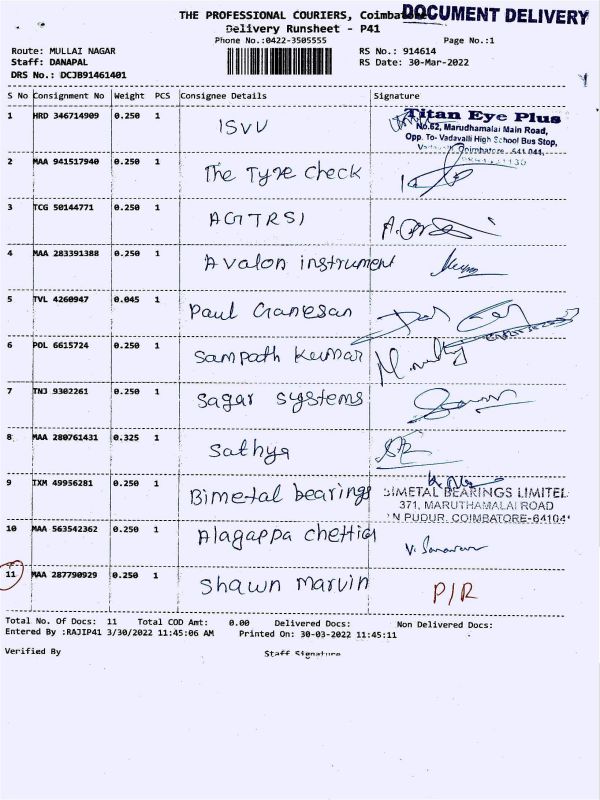 THE PROFESSIONAL COURIERS, Coimbat
DOCUMENT DELIVERY
Delivery Runsheet - P41
Phone No.:0422-3505555
Page No.:1
Route: MULLAI NAGAR
RS No.: 914614
Staff: DANAPAL
RS Date: 30-Mar-2022
DRS No.: DCJB91461401
S No Consignment No Weight PCS Consignee Details Signature
1 HRD 346714909 0.250 1 ISVU
Titan Eye Plus
No.62, Marudhamalai Main Road,
Opp. To- Vadavalli High School Bus Stop,
Coimbatore - 641 041.
2 MAA 941517940 0.250 1 The Tyre Check
3 TCG 50144771 0.250 1 AGTRSI
4 MAA 283391388 0.250 1 Avalon instrument
5 TVL 4260947 0.045 1 Paul Ganesan
6 POL 6615724 0.250 1 Sampath Kumar
7 TNJ 9302261 0.250 1 Sagar systems
8 MAA 280761431 0.325 1 Sathya
9 TXM 49956281 0.250 1 Bimetal bearings
BIMETAL BEARINGS LIMITED
371, MARUTHAMALAI ROAD
N PUDUR, COIMBATORE-64104
10 MAA 563542362 0.250 1 Alagappa chettiar
11 MAA 287790929 0.250 1 Shawn marvin P/R
Total No. Of Docs: 11 Total COD Amt: 0.00 Delivered Docs: Non Delivered Docs:
Entered By :RAJIP41 3/30/2022 11:45:06 AM Printed On: 30-03-2022 11:45:11
Verified By Staff Signature